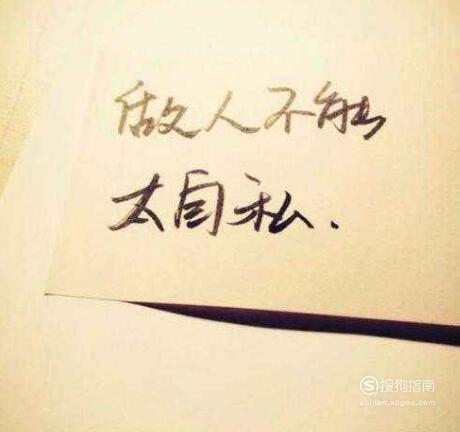 做人不能
太自私.
搜狗指南
zhinan.sogou.com